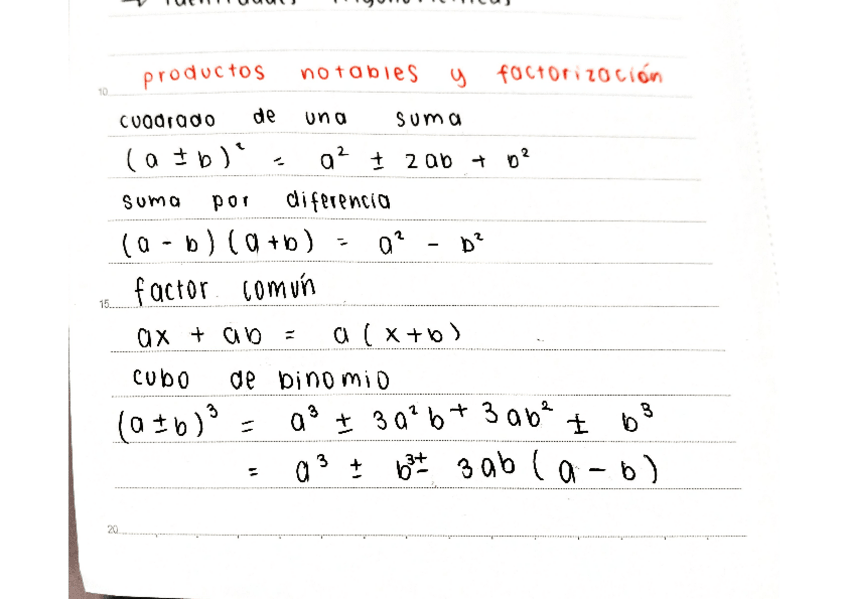 → Identidades trigonométricas
productos notables y factorización
10
cuadrado de una suma
(a ± b)² = a² ± 2ab + b²
suma por diferencia
(a - b)(a+b) = a² - b²
factor común
15
ax + ab = a(x+b)
cubo de binomio
(a±b)³ = a³ ± 3a²b + 3ab² ± b³
= a³ ± b³± 3ab(a - b)
20